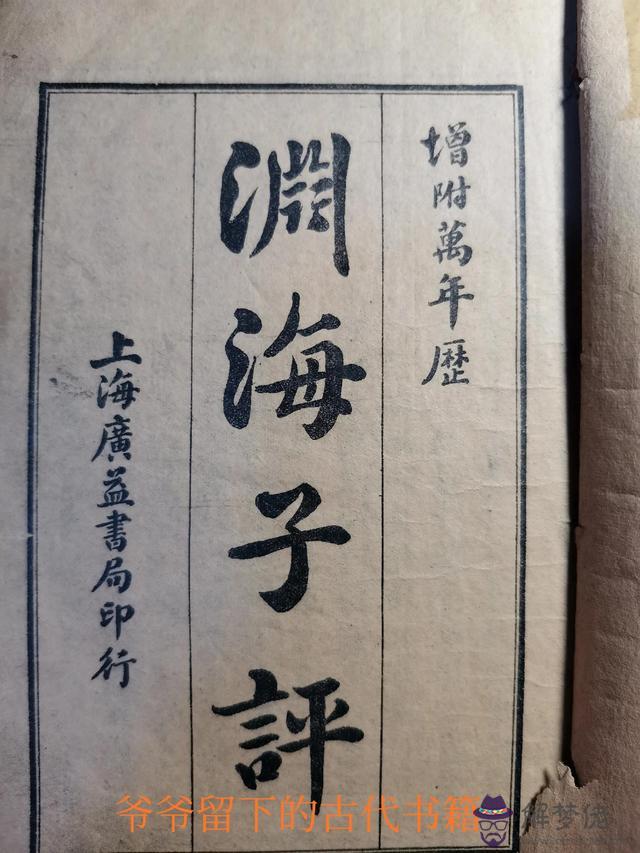 增附萬年歷
淵海子評
上海廣益書局印行
爷爷留下的古代书籍
解梦佬